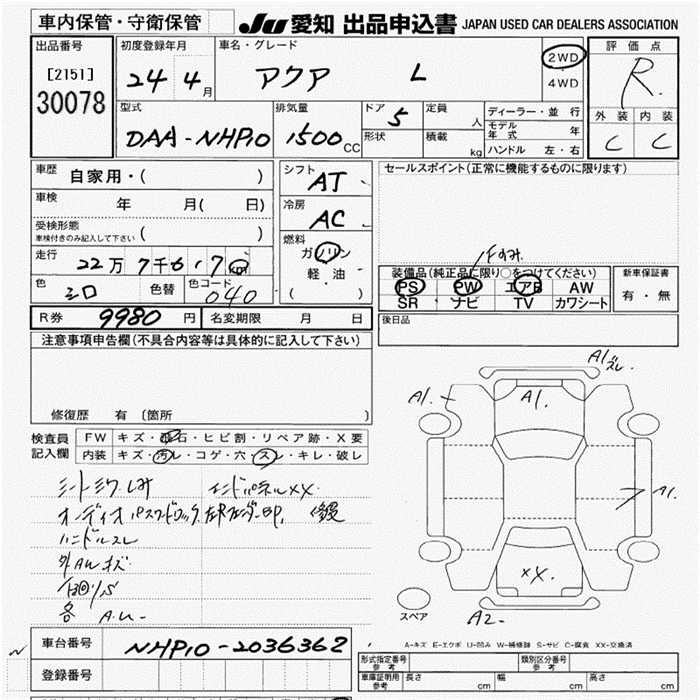 車内保管・守衛保管
JU 愛知 出品申込書 JAPAN USED CAR DEALERS ASSOCIATION
出品番号
[2151]
30078
初度登録年月
24年4月
車名・グレード
アクア L
2WD
・
4WD
評価点
R
外装 内装
C C
型式
DAA-NHP10
排気量
1500CC
ドア
5
形状
定員
人
積載
kg
ディーラー・並行
モデル年式 年
ハンドル 左・右
車歴
自家用・( )
車検
年 月( 日)
受検形態
車検付きのみ記入して下さい ( )
走行
22万7千617km
色
シロ
色替
色コード
040
シフト
AT
冷房
AC
燃料
ガソリン
軽・油
( )
セールスポイント(正常に機能するものに限ります)
装備品(純正品に限り○をつけてください)
PS PW エアB AW
SR ナビ TV カワシート
新車保証書
有・無
後日品
R券 9980円
名変期限 月 日
注意事項申告欄(不具合内容等は具体的に記入して下さい)
修復歴 有 〔箇所 〕
検査員
記入欄
FW キズ・飛石・ヒビ割・リペア跡・X要
内装 キズ・汚レ・コゲ・穴・スレ・キレ・破レ
シートシワ、しみ
エンドパネルXX
ハンドルスレ
外AWキズ
各 A.U-
A1 スレ
A1
A1
A1
XX
A2
スペア
A-キズ E-エクボ U-凹み W-補修跡 S-サビ C-腐食 XX-交換済
車台番号 NHP10-2036362
登録番号
型式指定番号
参考
類別区分番号
参考
車庫証明用
参考
長さ cm 幅 cm 高さ cm